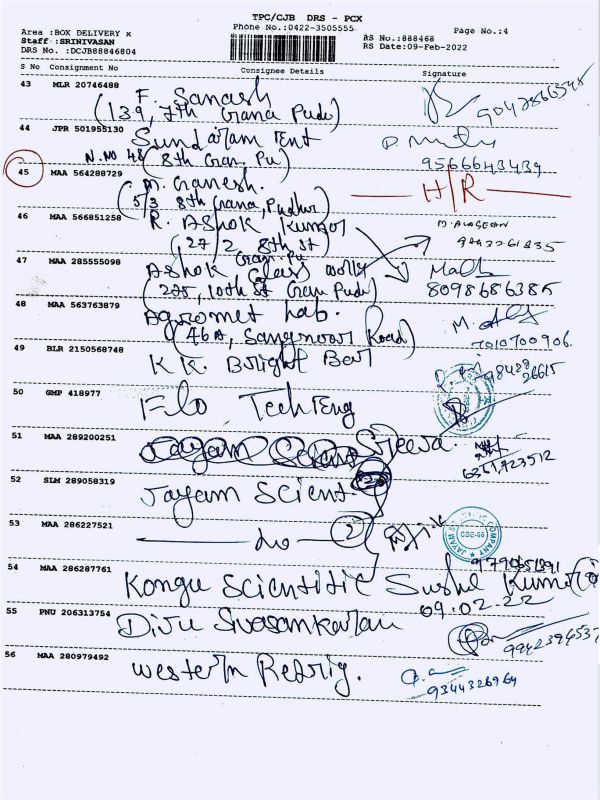 TPC/CJB DRS - PCX
Phone No.:0422-3505555
Page No.:4
Area :BOX DELIVERY x
Staff :SRINIVASAN
DRS No. :DCJB88846804
RS No.:888468
RS Date:09-Feb-2022
S No Consignment No Consignee Details Signature
43 MLR 20746488
F. Sanash
(139, 7th Gana Pudu)
9042866548
44 JPR 501955130
Sundaram Tent
N.NO 48 (8th Gran. Pu)
9566643439
45 MAA 564288729
M. Ganesh.
(5/3 8th Grana, Pudhur)
H/R
46 MAA 566851258
R. Ashok Kumar
(,27/2 8th St)
Gran. Pu
M. ALAGESAN
47 MAA 285555098
Ashok Glass
(225, 10th St Gram Pudu)
8098686385
48 MAA 563763879
Agromet Lab.
(46A, Sanganoor Road)
7010700906.
49 BLR 2150568748
K K. Bright Bar
9842926615
50 GMP 418977
Flo Tech Eng
51 MAA 289200251
Sreeja.
6361723512
52 SLM 289058319
Jayam Scient.
53 MAA 286227521
Do 2
CBE-06
54 MAA 286287761
9790651391
Kongu Scientific Sushil Kumar
09.02.22
55 PNU 206313754
Diju Sivasankaran
9942394537
56 MAA 280979492
Western Refrig.
9344326964